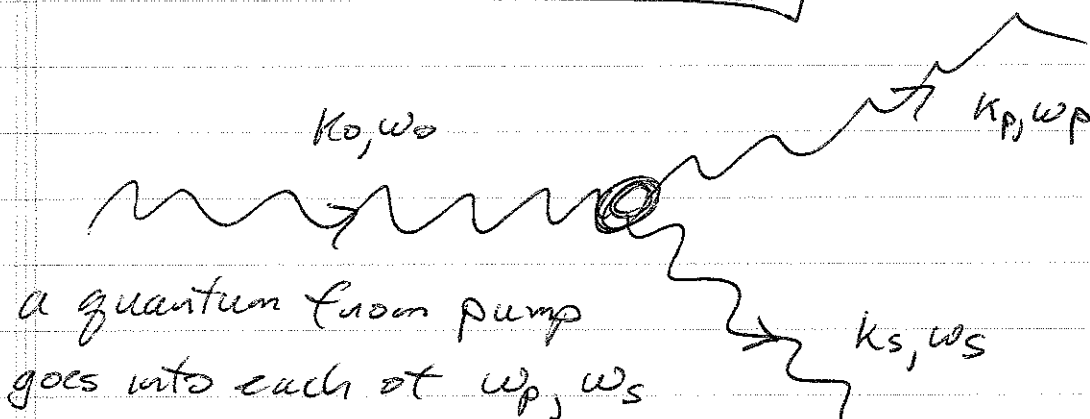 k₀, ω₀
kₚ, ωₚ
a quantum from pump
kₛ, ωₛ
goes into each of ωₚ, ωₛ